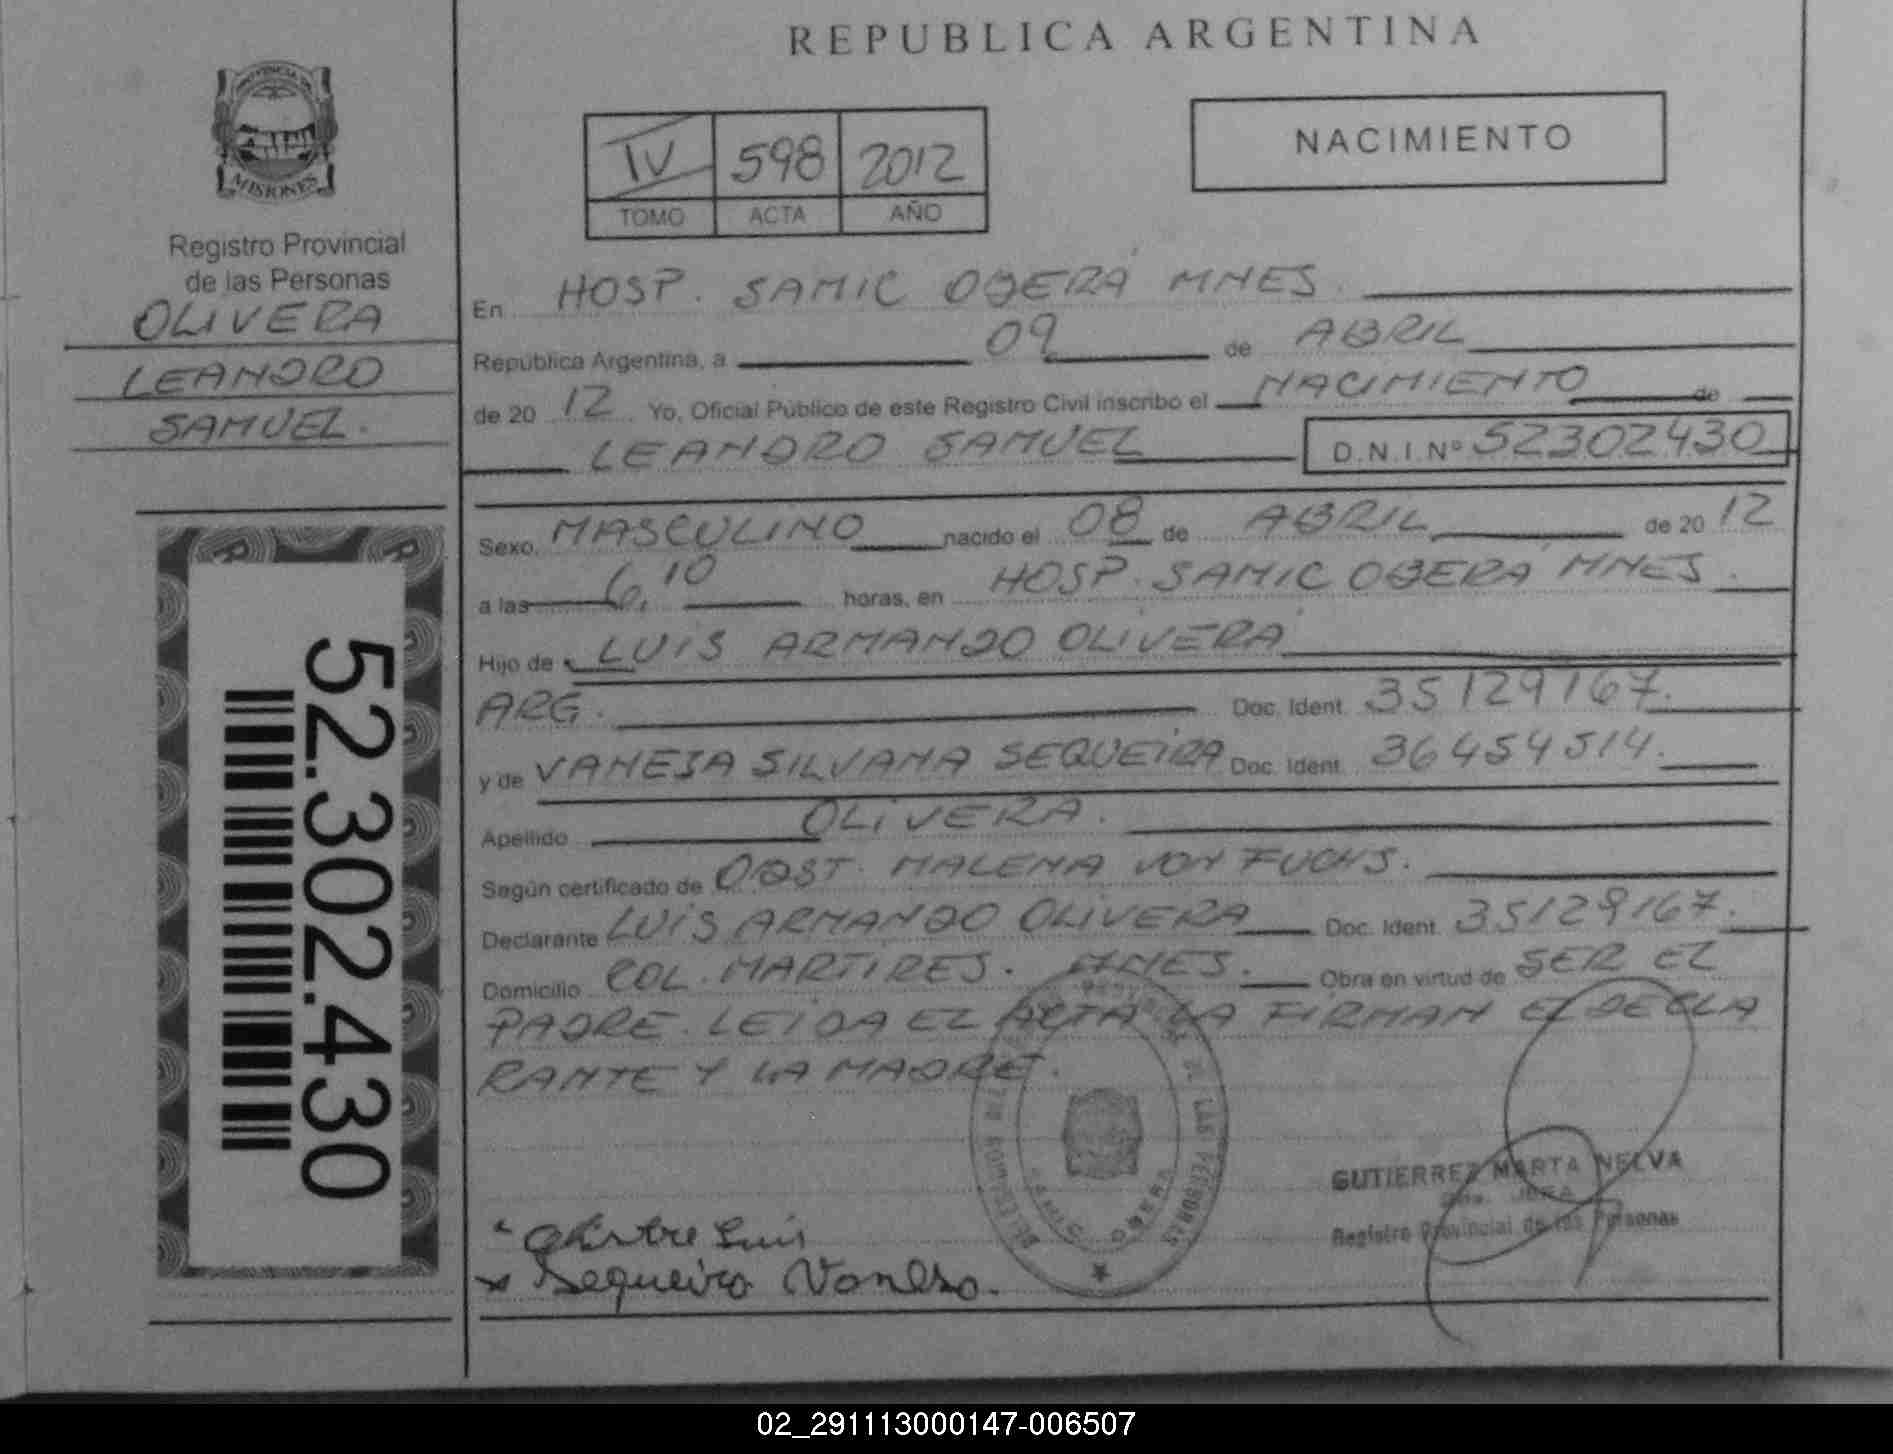 REPUBLICA ARGENTINA
PROVINCIA DE
MISIONES
Registro Provincial
de las Personas
OLIVERA
LEANDRO
SAMUEL.
52.302.430
IV 598 2012
TOMO ACTA AÑO
NACIMIENTO
En HOSP. SAMIC OBERÁ MNES.
República Argentina, a 09 de ABRIL
de 20 12 Yo, Oficial Público de este Registro Civil inscribo el NACIMIENTO de
LEANDRO SAMUEL D.N.I.Nº 52302430
Sexo MASCULINO nacido el 08 de ABRIL de 20 12
a las 6,10 horas, en HOSP. SAMIC OBERÁ MNES.
Hijo de LUIS ARMANDO OLIVERA
ARG. Doc. Ident. 35129167.
y de VANESA SILVANA SEQUEIRA Doc. Ident. 36454514.
Apellido OLIVERA.
Según certificado de OBST. MALENA VON FUCHS.
Declarante LUIS ARMANDO OLIVERA Doc. Ident. 35129167.
Domicilio COL. MARTIRES. MNES. Obra en virtud de SER EL
PADRE. LEIDA EL ACTA LA FIRMAN EL DECLA
RANTE Y LA MADRE.
DE LAS PERSONAS
OBERÁ
GUTIERREZ MARTA NELVA
Registro Provincial de las Personas
Luis
x Sequeira Vanesa.
02_291113000147-006507